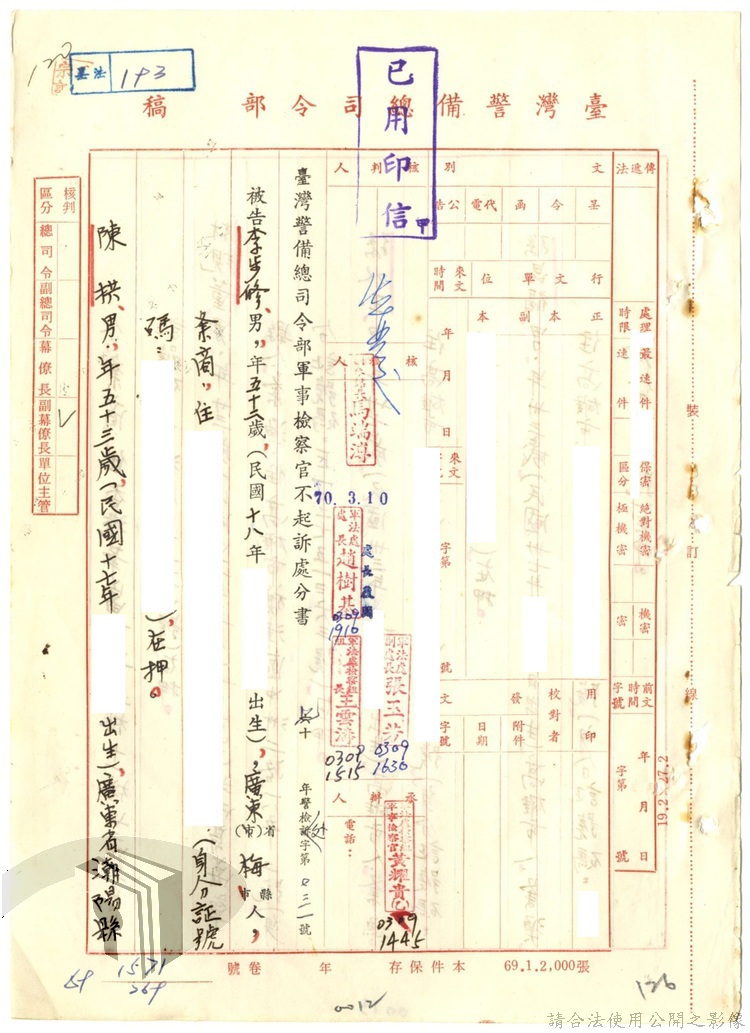 臺灣警備總司令部 稿
已用印信 甲
法墨 193
133
傳遞法
處理時限 最速件 速件
保密區分 絕對機密 極機密 機密 密
前文 時間 字號 年 月 日 字第 號
文別
呈 令 函 代電 公告
行文單位
正本
副本
來文時間 年 月 日
來文 字第 號
發文
用印
校對者
附件
日期
字號
核判人
核稿人
70.3.10
軍法處處長 趙樹基
0309
1910
處長核閱
軍法處副處長 張玉芳
0309
1630
王雲濤
0309
1515
承辦人
電話:
軍事檢察官 黃耀貴
0309
1445
臺灣警備總司令部軍事檢察官不起訴處分書
七十年警檢處字第〇三一號
被告李步修,男,年五十三歲,(民國十八年 出生),廣東省(市)梅縣市人,
業商,住 (身分証號
碼: ),在押。
陳拱,男,年五十三歲,(民國十七年 出生),廣東省潮陽縣
核判區分 總司令 副總司令 幕僚長 副幕僚長 單位主管
裝 訂 線
19.2×27.2
本件保存 年 卷 號
69.1.2,000張
1531
0012
126
請合法使用公開之影像